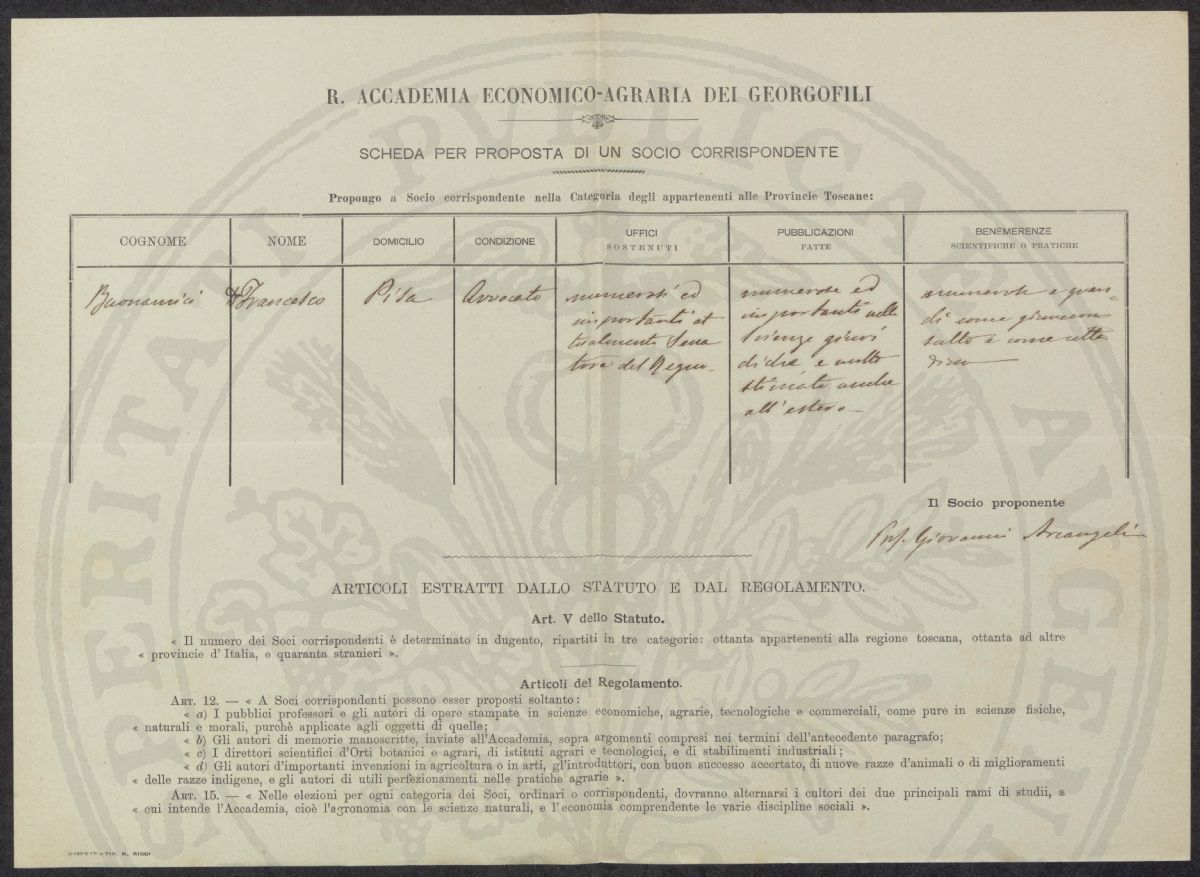 R. ACCADEMIA ECONOMICO-AGRARIA DEI GEORGOFILI
SCHEDA PER PROPOSTA DI UN SOCIO CORRISPONDENTE
Propongo a Socio corrispondente nella Categoria degli appartenenti alle Provincie Toscane:
COGNOME
NOME
DOMICILIO
CONDIZIONE
UFFICI
SOSTENUTI
PUBBLICAZIONI
FATTE
BENEMERENZE
SCIENTIFICHE O PRATICHE
Buonamici
Francesco
Pisa
Avvocato
numerosi ed
importanti at
tualmente Sena
tore del Regno.
numerose ed
importanti nelle
Scienze giuri
diche e molto
stimate anche
all'estero
numerose e gran-
di come giurecon
sulto e come
Il Socio proponente
Prof. Giovanni Arcangeli
ARTICOLI ESTRATTI DALLO STATUTO E DAL REGOLAMENTO.
Art. V dello Statuto.
« Il numero dei Soci corrispondenti è determinato in dugento, ripartiti in tre categorie: ottanta appartenenti alla regione toscana, ottanta ad altre
« provincie d'Italia, e quaranta stranieri ».
Articoli del Regolamento.
ART. 12. — « A Soci corrispondenti possono esser proposti soltanto:
« a) I pubblici professori e gli autori di opere stampate in scienze economiche, agrarie, tecnologiche e commerciali, come pure in scienze fisiche,
« naturali e morali, purchè applicate agli oggetti di quelle;
« b) Gli autori di memorie manoscritte, inviate all'Accademia, sopra argomenti compresi nei termini dell'antecedente paragrafo;
« c) I direttori scientifici d'Orti botanici e agrari, di istituti agrari e tecnologici, e di stabilimenti industriali;
« d) Gli autori d'importanti invenzioni in agricoltura o in arti, gl'introduttori, con buon successo accertato, di nuove razze d'animali o di miglioramenti
« delle razze indigene, e gli autori di utili perfezionamenti nelle pratiche agrarie ».
ART. 15. — « Nelle elezioni per ogni categoria dei Soci, ordinari o corrispondenti, dovranno alternarsi i cultori dei due principali rami di studii, a
« cui intende l'Accademia, cioè l'agronomia con le scienze naturali, e l'economia comprendente le varie discipline sociali ».
FIRENZE - TIP. M. RICCI
PROSPERITATI PVBLICAE AVGENDAE